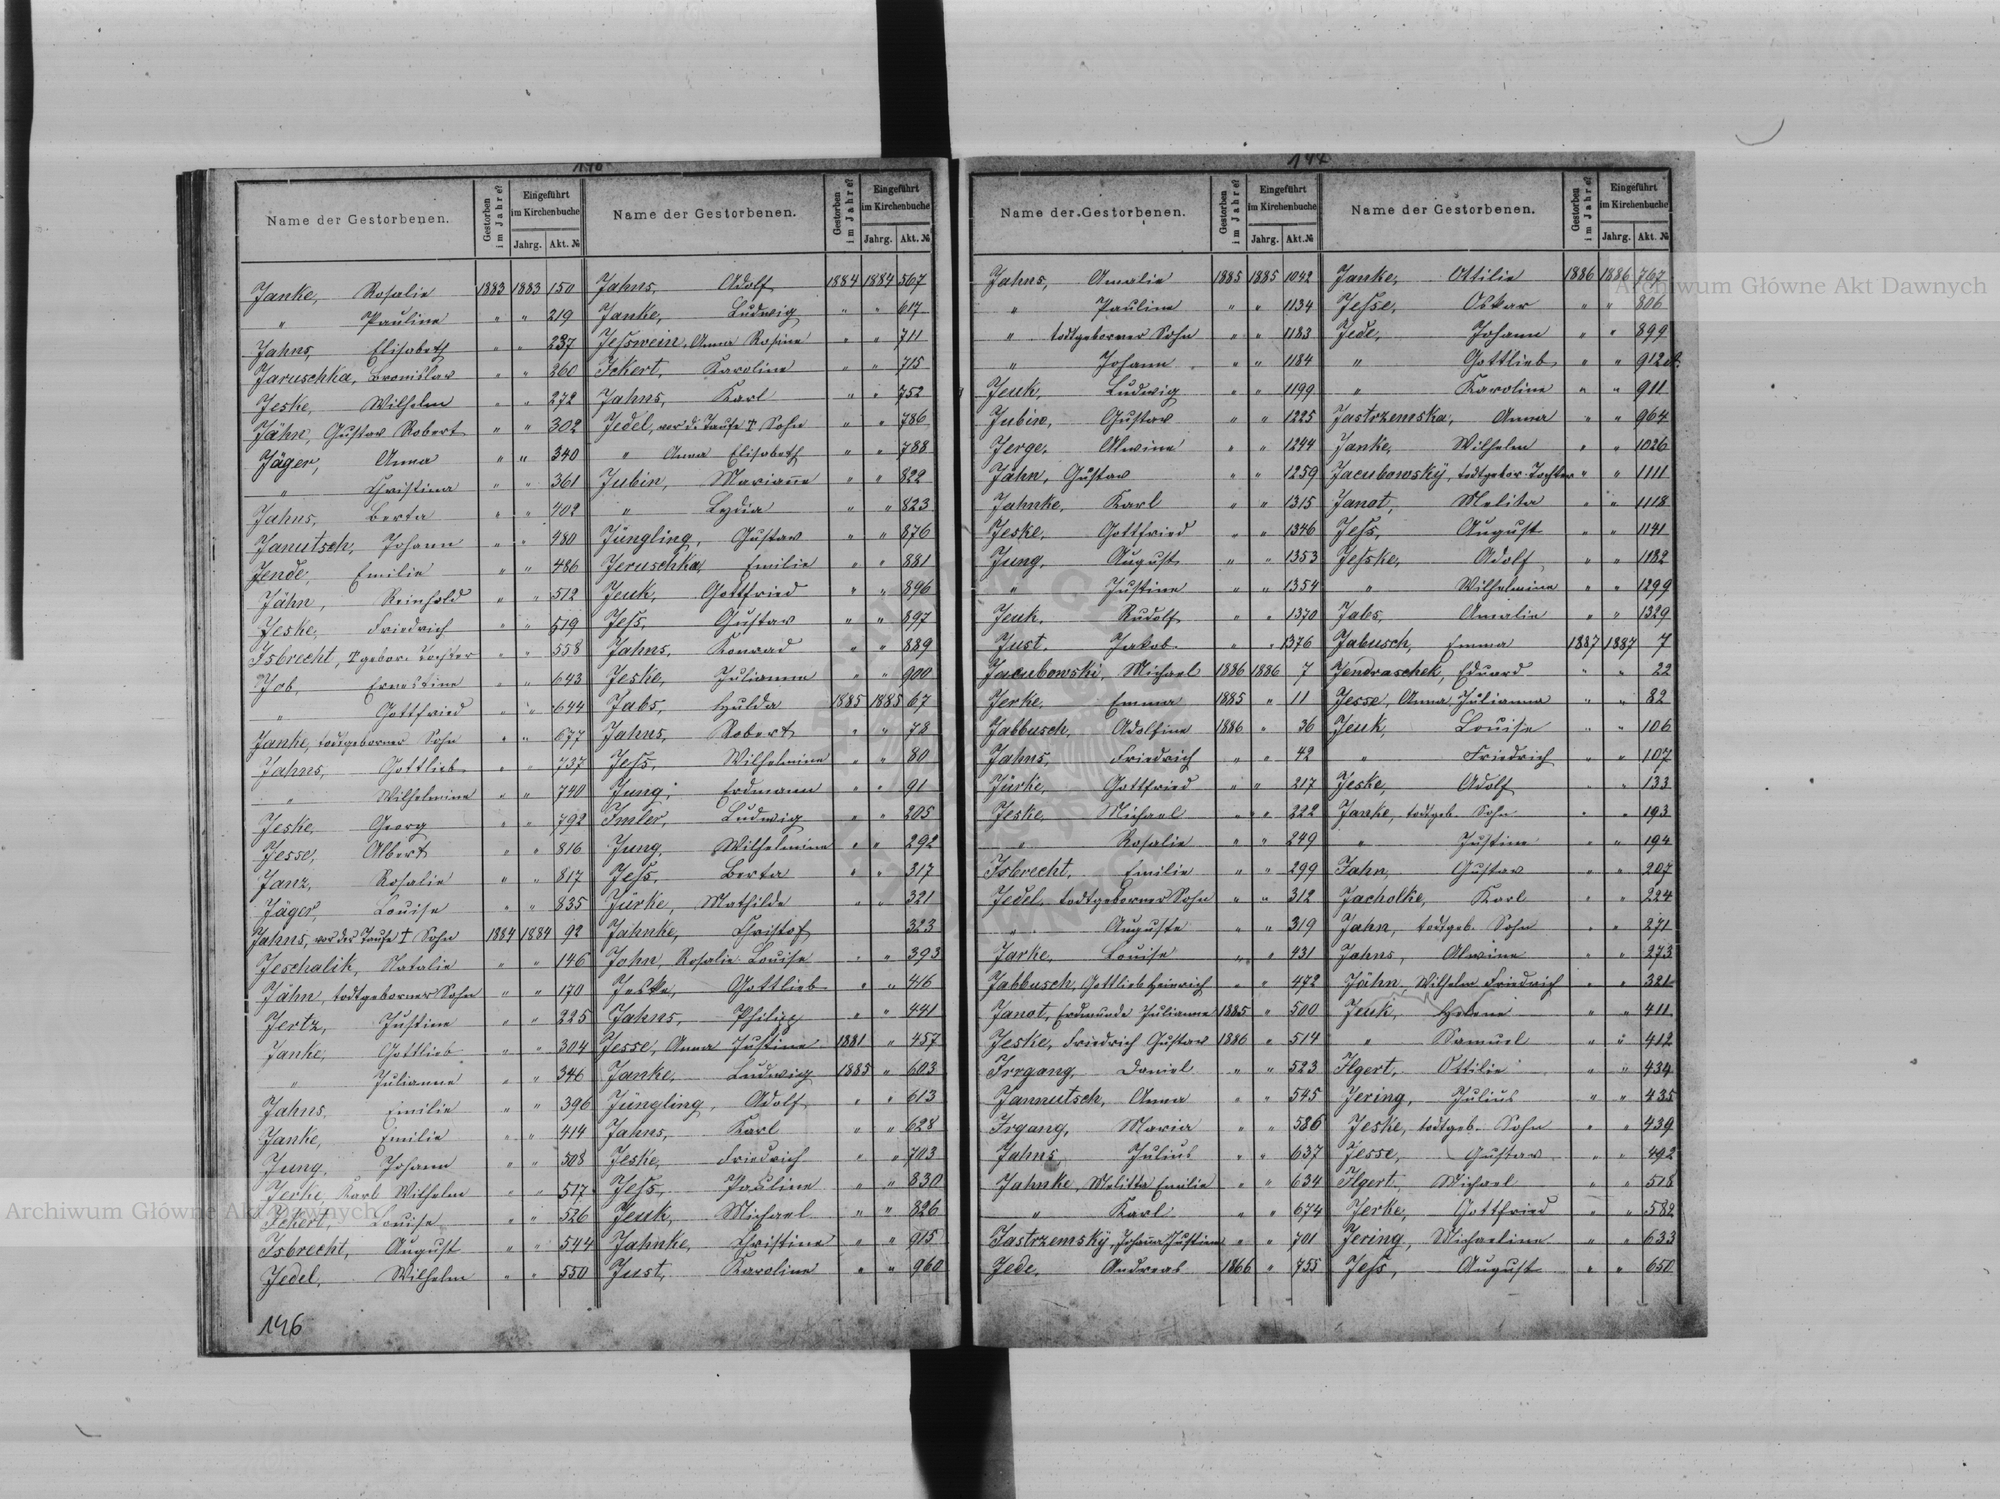 146
Name der Gestorbenen.
Gestorben im Jahre?
Eingeführt im Kirchenbuche
Jahrg. Akt. №
Janke, Rosalie 1883 1883 150
" Pauline " " 219
Jahns, Elisabeth " " 237
Jaruschka, Bronislav " " 260
Jeske, Wilhelm " " 272
Jähn, Gustav Robert " " 302
Jäger, Anna " " 340
" Christina " " 361
Jahns, Berta " " 402
Janutsch, Johann " " 480
Jende, Emilie " " 486
Jähn, Reinhold " " 512
Jeske, Friedrich " " 519
Isbrecht, † gebor. Tochter " " 558
Job, Ernestine " " 643
" Gottfried " " 644
Janke, todtgeborner Sohn " " 677
Jahns, Gottlieb " " 737
" Wilhelmine " " 740
Jeske, Georg " " 792
Jesse, Albert " " 816
Janz, Rosalie " " 817
Jäger, Louise " " 835
Jahns, vor der Taufe † Sohn 1884 1884 92
Jeschalik, Natalie " " 146
Jähn, todtgeborner Sohn " " 170
Jertz, Justine " " 225
Janke, Gottlieb " " 304
" Julianne " " 346
Jahns, Emilie " " 396
Janke, Emilie " " 414
Jung, Johann " " 508
Jerke, Karl Wilhelm " " 517
Ickert, Louise " " 526
Isbrecht, August " " 544
Jedel, Wilhelm " " 550
Name der Gestorbenen.
Gestorben im Jahre?
Eingeführt im Kirchenbuche
Jahrg. Akt. №
Jahns, Adolf 1884 1884 567
Janke, Ludwig " " 617
Jesswein, Anna Rosine " " 711
Ickert, Karoline " " 715
Jahns, Karl " " 752
Jedel, vor d. Taufe † Sohn " " 786
" Anna Elisabeth " " 788
Jubin, Marianne " " 822
" Lydia " " 823
Jüngling, Gustav " " 876
Jeruschka, Emilie " " 881
Jeuk, Gottfried " " 896
Jess, Gustav " " 897
Jahns, Konrad " " 889
Jeske, Julianne " " 900
Jabs, Hulda 1885 1885 67
Jahns, Robert " " 78
Jess, Wilhelmine " " 80
Jung, Erdmann " " 91
Imler, Ludwig " " 205
Jung, Wilhelmine " " 292
Jess, Berta " " 317
Jürke, Mathilde " " 321
Jahnke, Christof 323
John, Rosalie Louise " " 393
Jeske, Gottlieb " " 416
Jahns, Philipp " " 441
Jesse, Anna Justine 1881 " 457
Janke, Ludwig 1885 " 603
Jüngling, Adolf " " 613
Jahns, Karl " " 628
Jeske, Friedrich " " 703
Jess, Pauline " " 830
Jeuk, Michael " " 826
Jahnke, Christine " " 915
Just, Karoline " " 960
147
Name der Gestorbenen.
Gestorben im Jahre?
Eingeführt im Kirchenbuche
Jahrg. Akt. №
Jahns, Amalie 1885 1885 1042
" Pauline " " 1134
" todtgeborner Sohn " " 1183
" Johann " " 1184
Jeuk, Ludwig " " 1199
Jubin, Gustav " " 1225
Jerge, Alwine " " 1244
Jähn, Gustav " " 1259
Jahnke, Karl " " 1315
Jeske, Gottfried " " 1346
Jung, August " " 1353
" Justine " " 1354
Jeuk, Rudolf " " 1370
Just, Jakob " " 1376
Jacubowski, Michael 1886 1886 7
Jerke, Emma 1885 " 11
Jabbusch, Adolfine 1886 " 36
Jahns, Friedrich " " 42
Jürke, Gottfried " " 217
Jeske, Michael " " 222
" Rosalie " " 249
Isbrecht, Emilie " " 299
Jedel, todtgeborner Sohn " " 312
" Auguste " " 319
Jarke, Louise " " 431
Jabbusch, Gottlieb Heinrich " " 472
Janot, Erdmunde Julianne 1885 " 500
Jeske, Friedrich Gustav 1886 " 514
Irrgang, Daniel " " 523
Jannutsch, Anna " " 545
Irgang, Maria " " 586
Jahns, Julius " " 637
Jahnke, Melitta Emilie " " 634
" Karl " " 674
Jastrzemsky, Johanna Justine " " 701
Jede, Andreas 1866 " 755
Name der Gestorbenen.
Gestorben im Jahre?
Eingeführt im Kirchenbuche
Jahrg. Akt. №
Janke, Ottilie 1886 1886 767
Jesse, Oskar " " 806
Jede, Johann " " 899
" Gottlieb " " 912
" Karoline " " 911
Jastrzemska, Anna " " 964
Janke, Wilhelm " " 1026
Jacubowsky, todtgebor. Tochter " " 1111
Janot, Melita " " 1118
Jess, August " " 1141
Jesske, Adolf " " 1182
" Wilhelmine " " 1299
Jabs, Amalie " " 1329
Jabusch, Emma 1887 1887 7
Jendraschek, Eduard " " 22
Jesse, Anna Julianna " " 82
Jeuk, Louise " " 106
" Friedrich " " 107
Jeske, Adolf " " 133
Janke, todtgeb. Sohn " " 193
" Justine " " 194
Jahn, Gustav " " 207
Jacholke, Karl " " 224
Jahn, todtgeb. Sohn " " 271
Jahns, Alwine " " 273
Jähn, Wilhelm Friedrich " " 321
Jeuk, Helene " " 411
" Samuel " " 412
Ilgert, Ottilie " " 434
Jering, Julius " " 435
Jeske, todtgeb. Sohn " " 439
Jesse, Gustav " " 492
Ilgert, Michael " " 518
Jerke, Gottfried " " 582
Jering, Michaeline " " 633
Jess, August " " 650
146
Archiwum Główne Akt Dawnych
Archiwum Główne Akt Dawnych